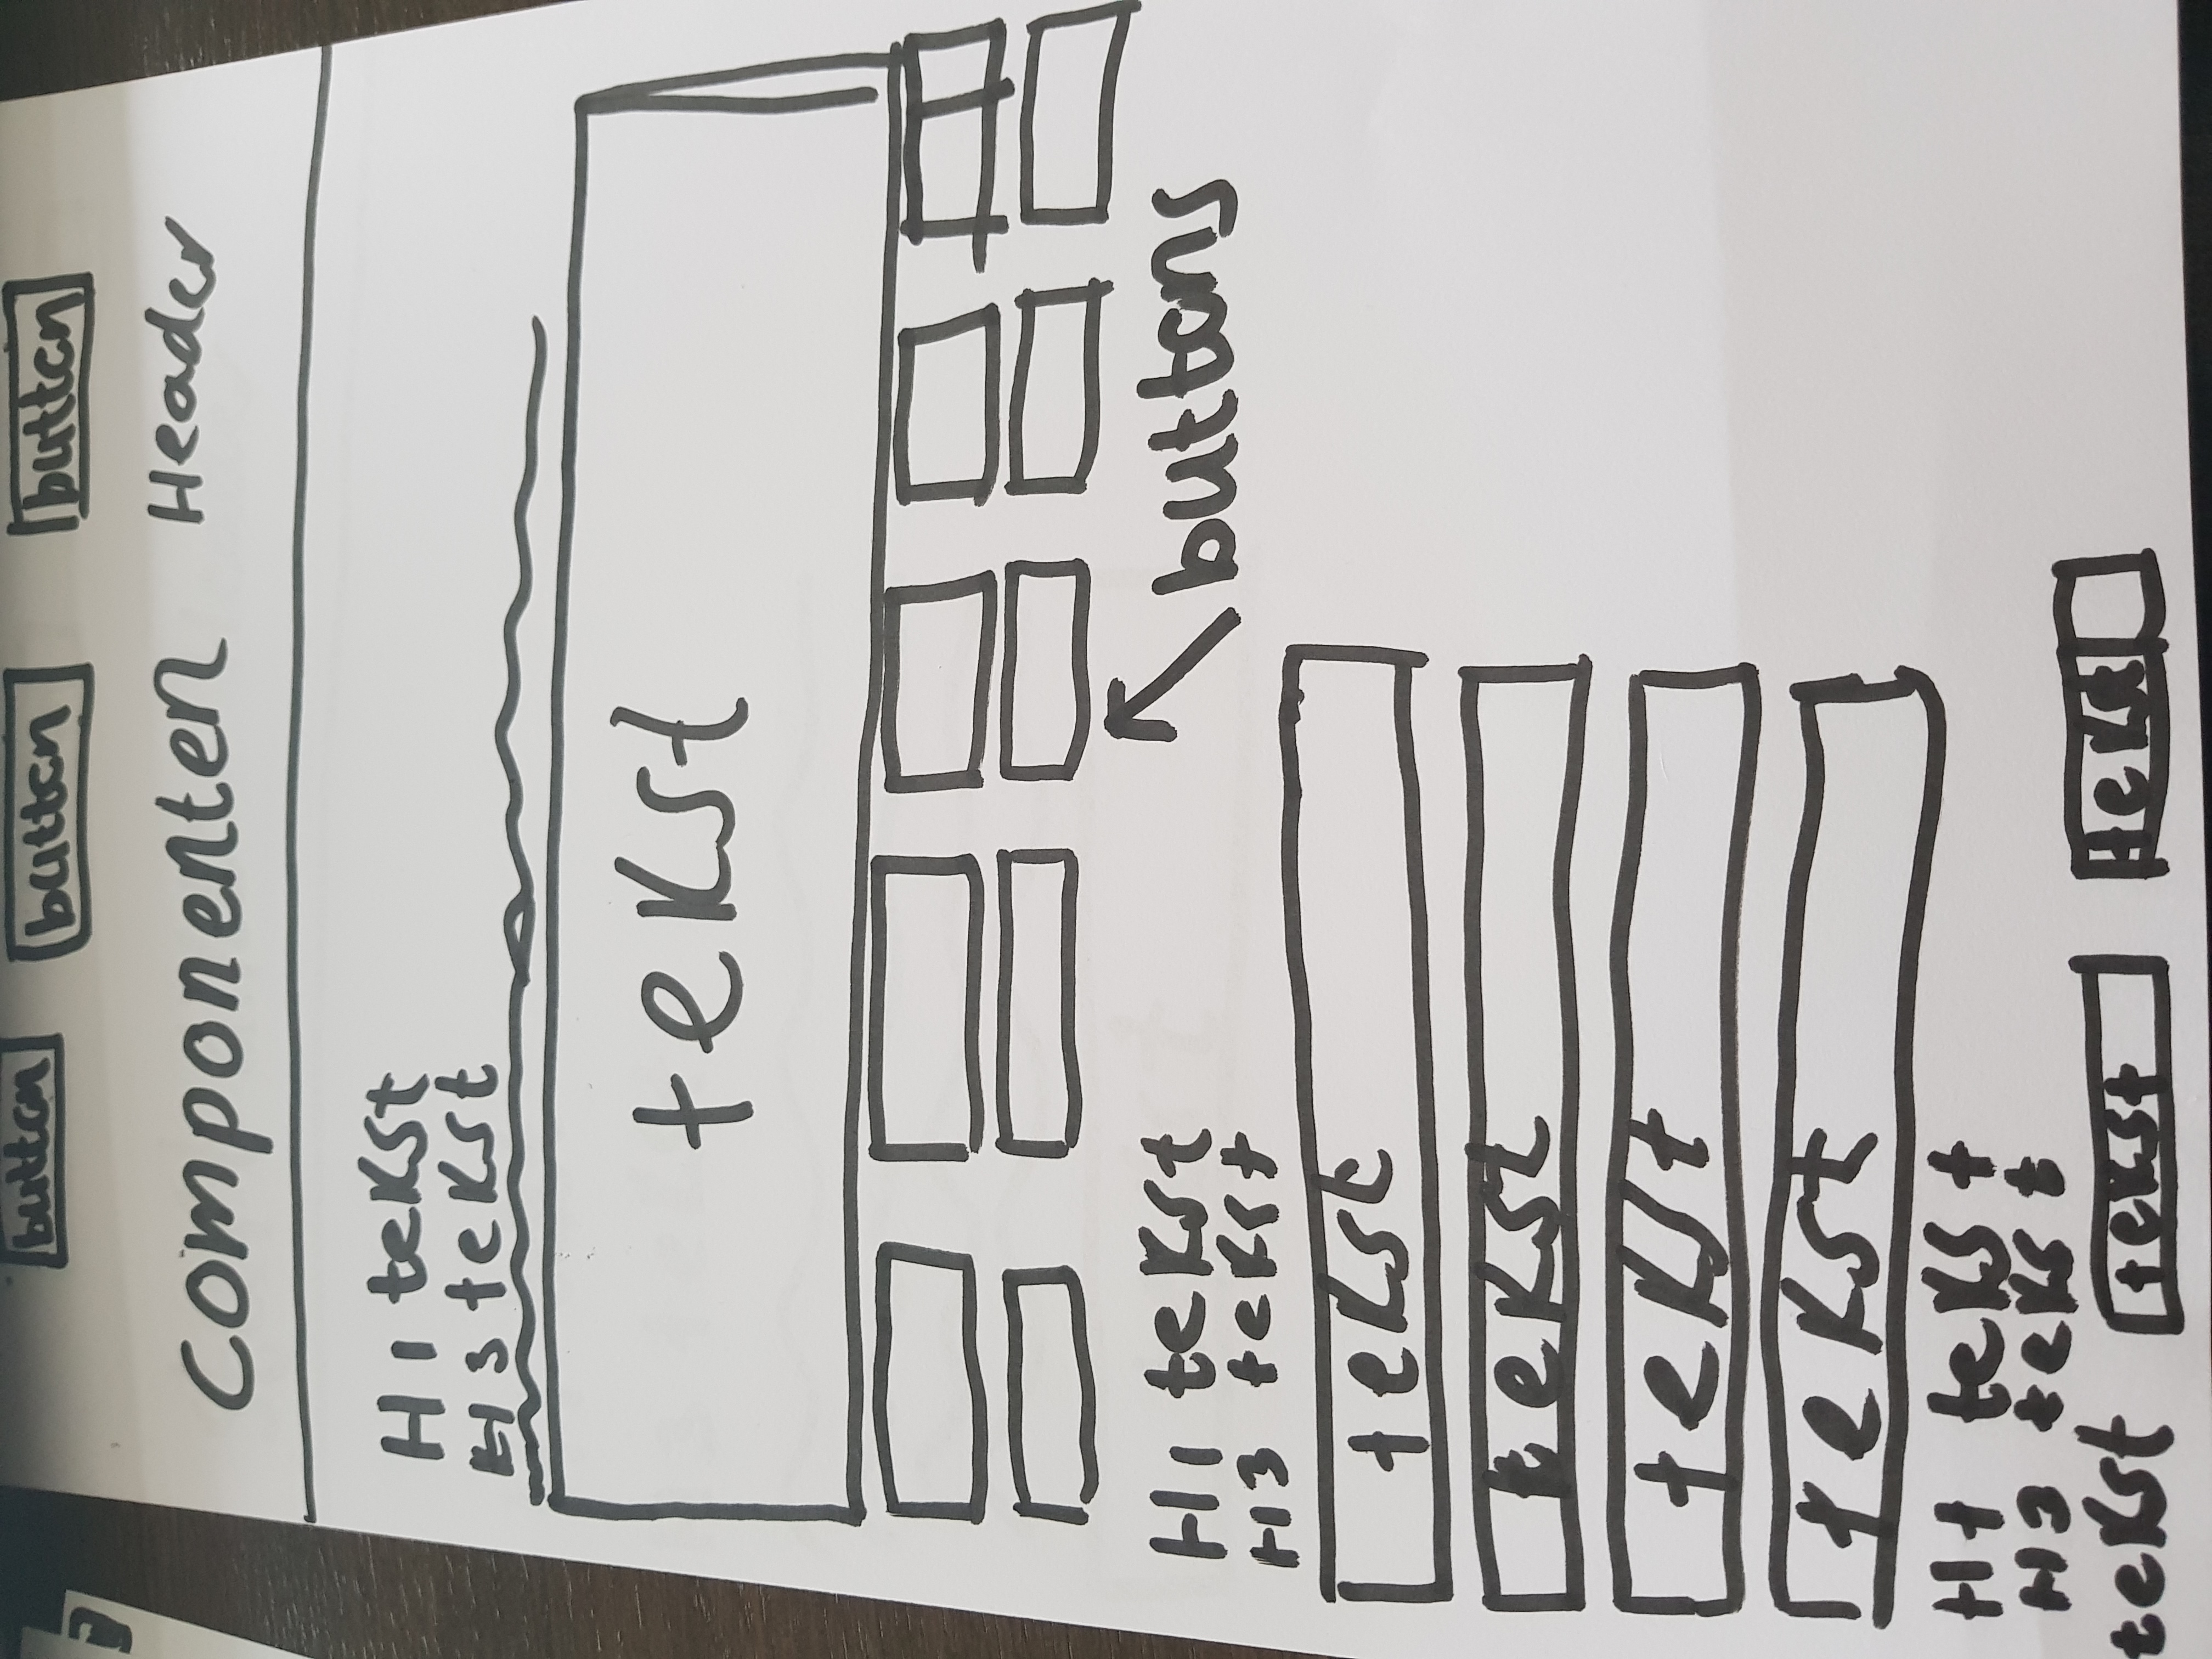 button button button
componenten Header
H1 tekst
H3 tekst
tekst
buttons
H1 tekst
H3 tekst
tekst
tekst
tekst
tekst
H1 tekst
H3 tekst
tekst tekst tekst